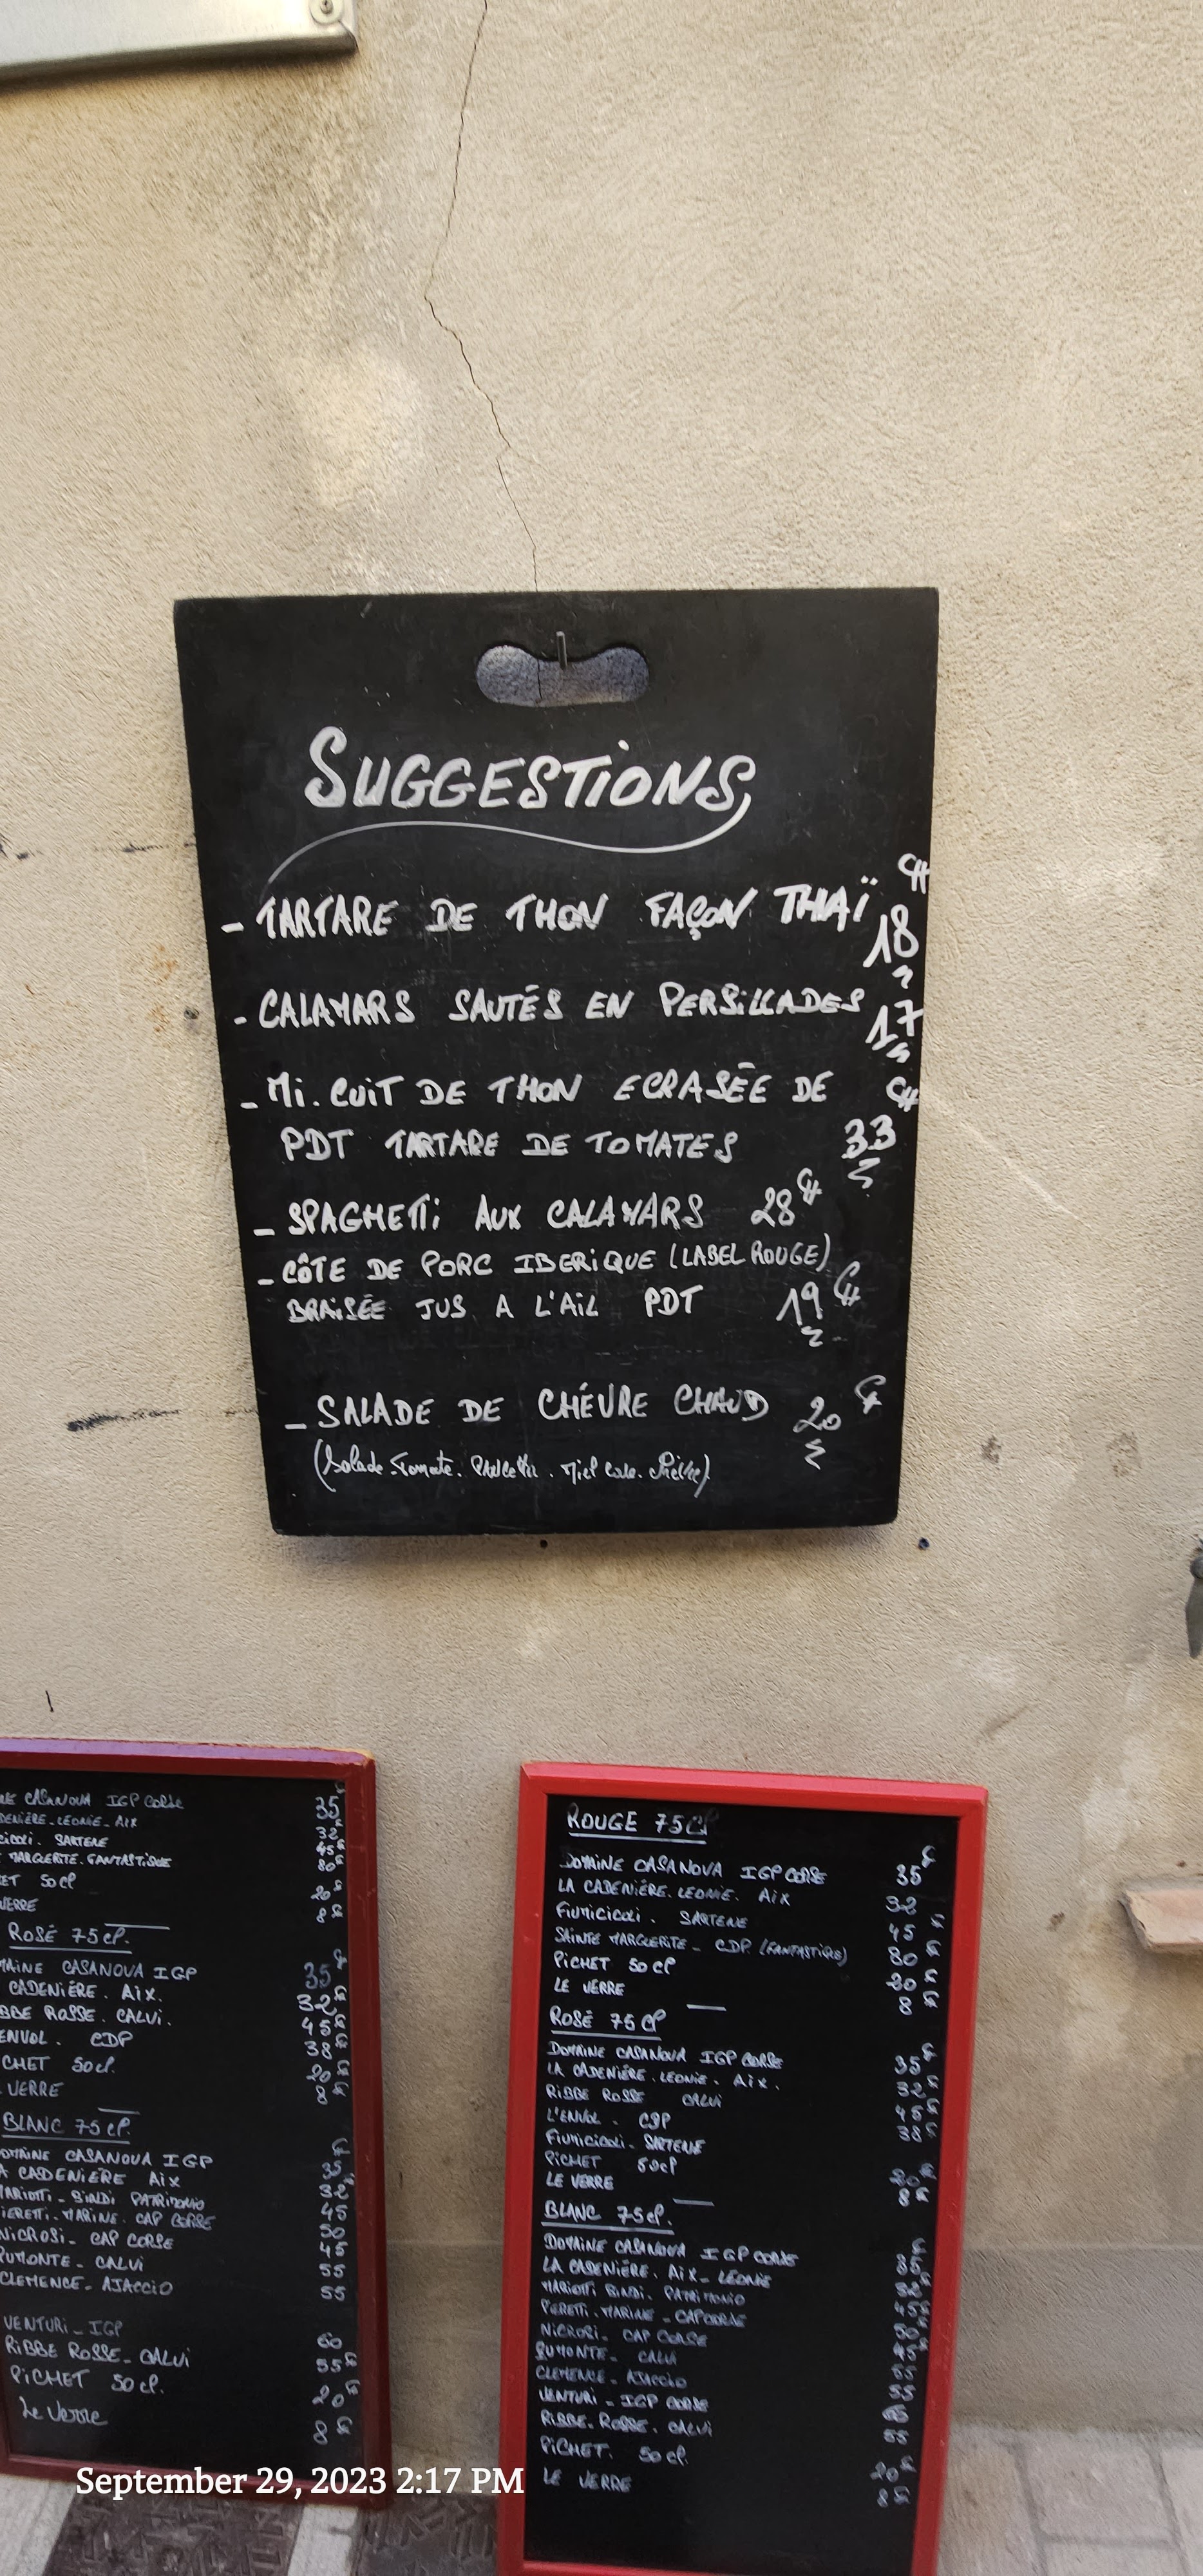 SUGGESTIONS
- TARTARE DE THON FAÇON THAÏ 18€
- CALAMARS SAUTÉS EN PERSILLADES 17
- Mi.CUIT DE THON ECRASÉE DE
PDT TARTARE DE TOMATES 33€
- SPAGHETTi AUX CALAMARS 28€
- CÔTE DE PORC IBERIQUE (LABEL ROUGE)
BRAISÉE JUS A L'AIL PDT 19€
- SALADE DE CHÉVRE CHAUD 20€
(Salade. Tomate. Pancetta. Miel Chèvre)
NE CASANOVA IGP CORSE 35€
DENIÈRE. LEONIE. AIX 32€
SARTENE 45€
MARGUERITE. FANTASTIQUE 80€
ET 50cl 20€
VERRE 8€
ROSÉ 75cl.
MAINE CASANOVA IGP 35€
CADENIÈRE. AIX. 32€
BBE ROSSE. CALVI. 45€
ENVOL. CDP 38€
CHET 50cl. 20€
VERRE 8€
BLANC 75cl.
OMAINE CASANOVA IGP 35€
A CADENIÈRE AIX 32
MARIOTTI - BINDI PATRIMONIO 45
IERETTI. MARINE. CAP CORSE 50
NICROSI - CAP CORSE 45
RUMONTE - CALVI 55
CLEMENCE - AJACCIO 55
VENTURI - IGP 60
RIBBE ROSSE - CALVI 55€
PICHET 50cl. 20€
Le verre 8€
ROUGE 75cl
DOMAINE CASANOVA IGP CORSE 35€
LA CADENIÈRE. LEONIE. AIX 32
FIUMICICOLI. SARTENE 45€
SAINTE MARGUERITE - CDP (FANTASTIQUE) 80€
PICHET 50cl 20€
LE VERRE 8€
ROSÉ 75cl
DOMAINE CASANOVA IGP CORSE 35€
LA CADENIÈRE. LEONIE. AIX. 32€
RIBBE ROSSE CALVI 45€
L'ENVOL. CDP 38€
FIUMICICOLI - SARTENE
PICHET 50cl 20€
LE VERRE 8€
BLANC 75cl.
DOMAINE CASANOVA IGP CORSE 35€
LA CADENIÈRE. AIX - LÉONIE 32€
MARIOTTI BINDI. PATRIMONIO 45€
PERETTI. MARINE - CAP CORSE 50€
NICROSI - CAP CORSE 45
RUMONTE - CALVI 55
CLEMENCE - AJACCIO 55
VENTURI - IGP CORSE
RIBBE. ROSSE. CALVI 55
PICHET. 50cl. 20€
LE VERRE 8€
September 29, 2023 2:17 PM